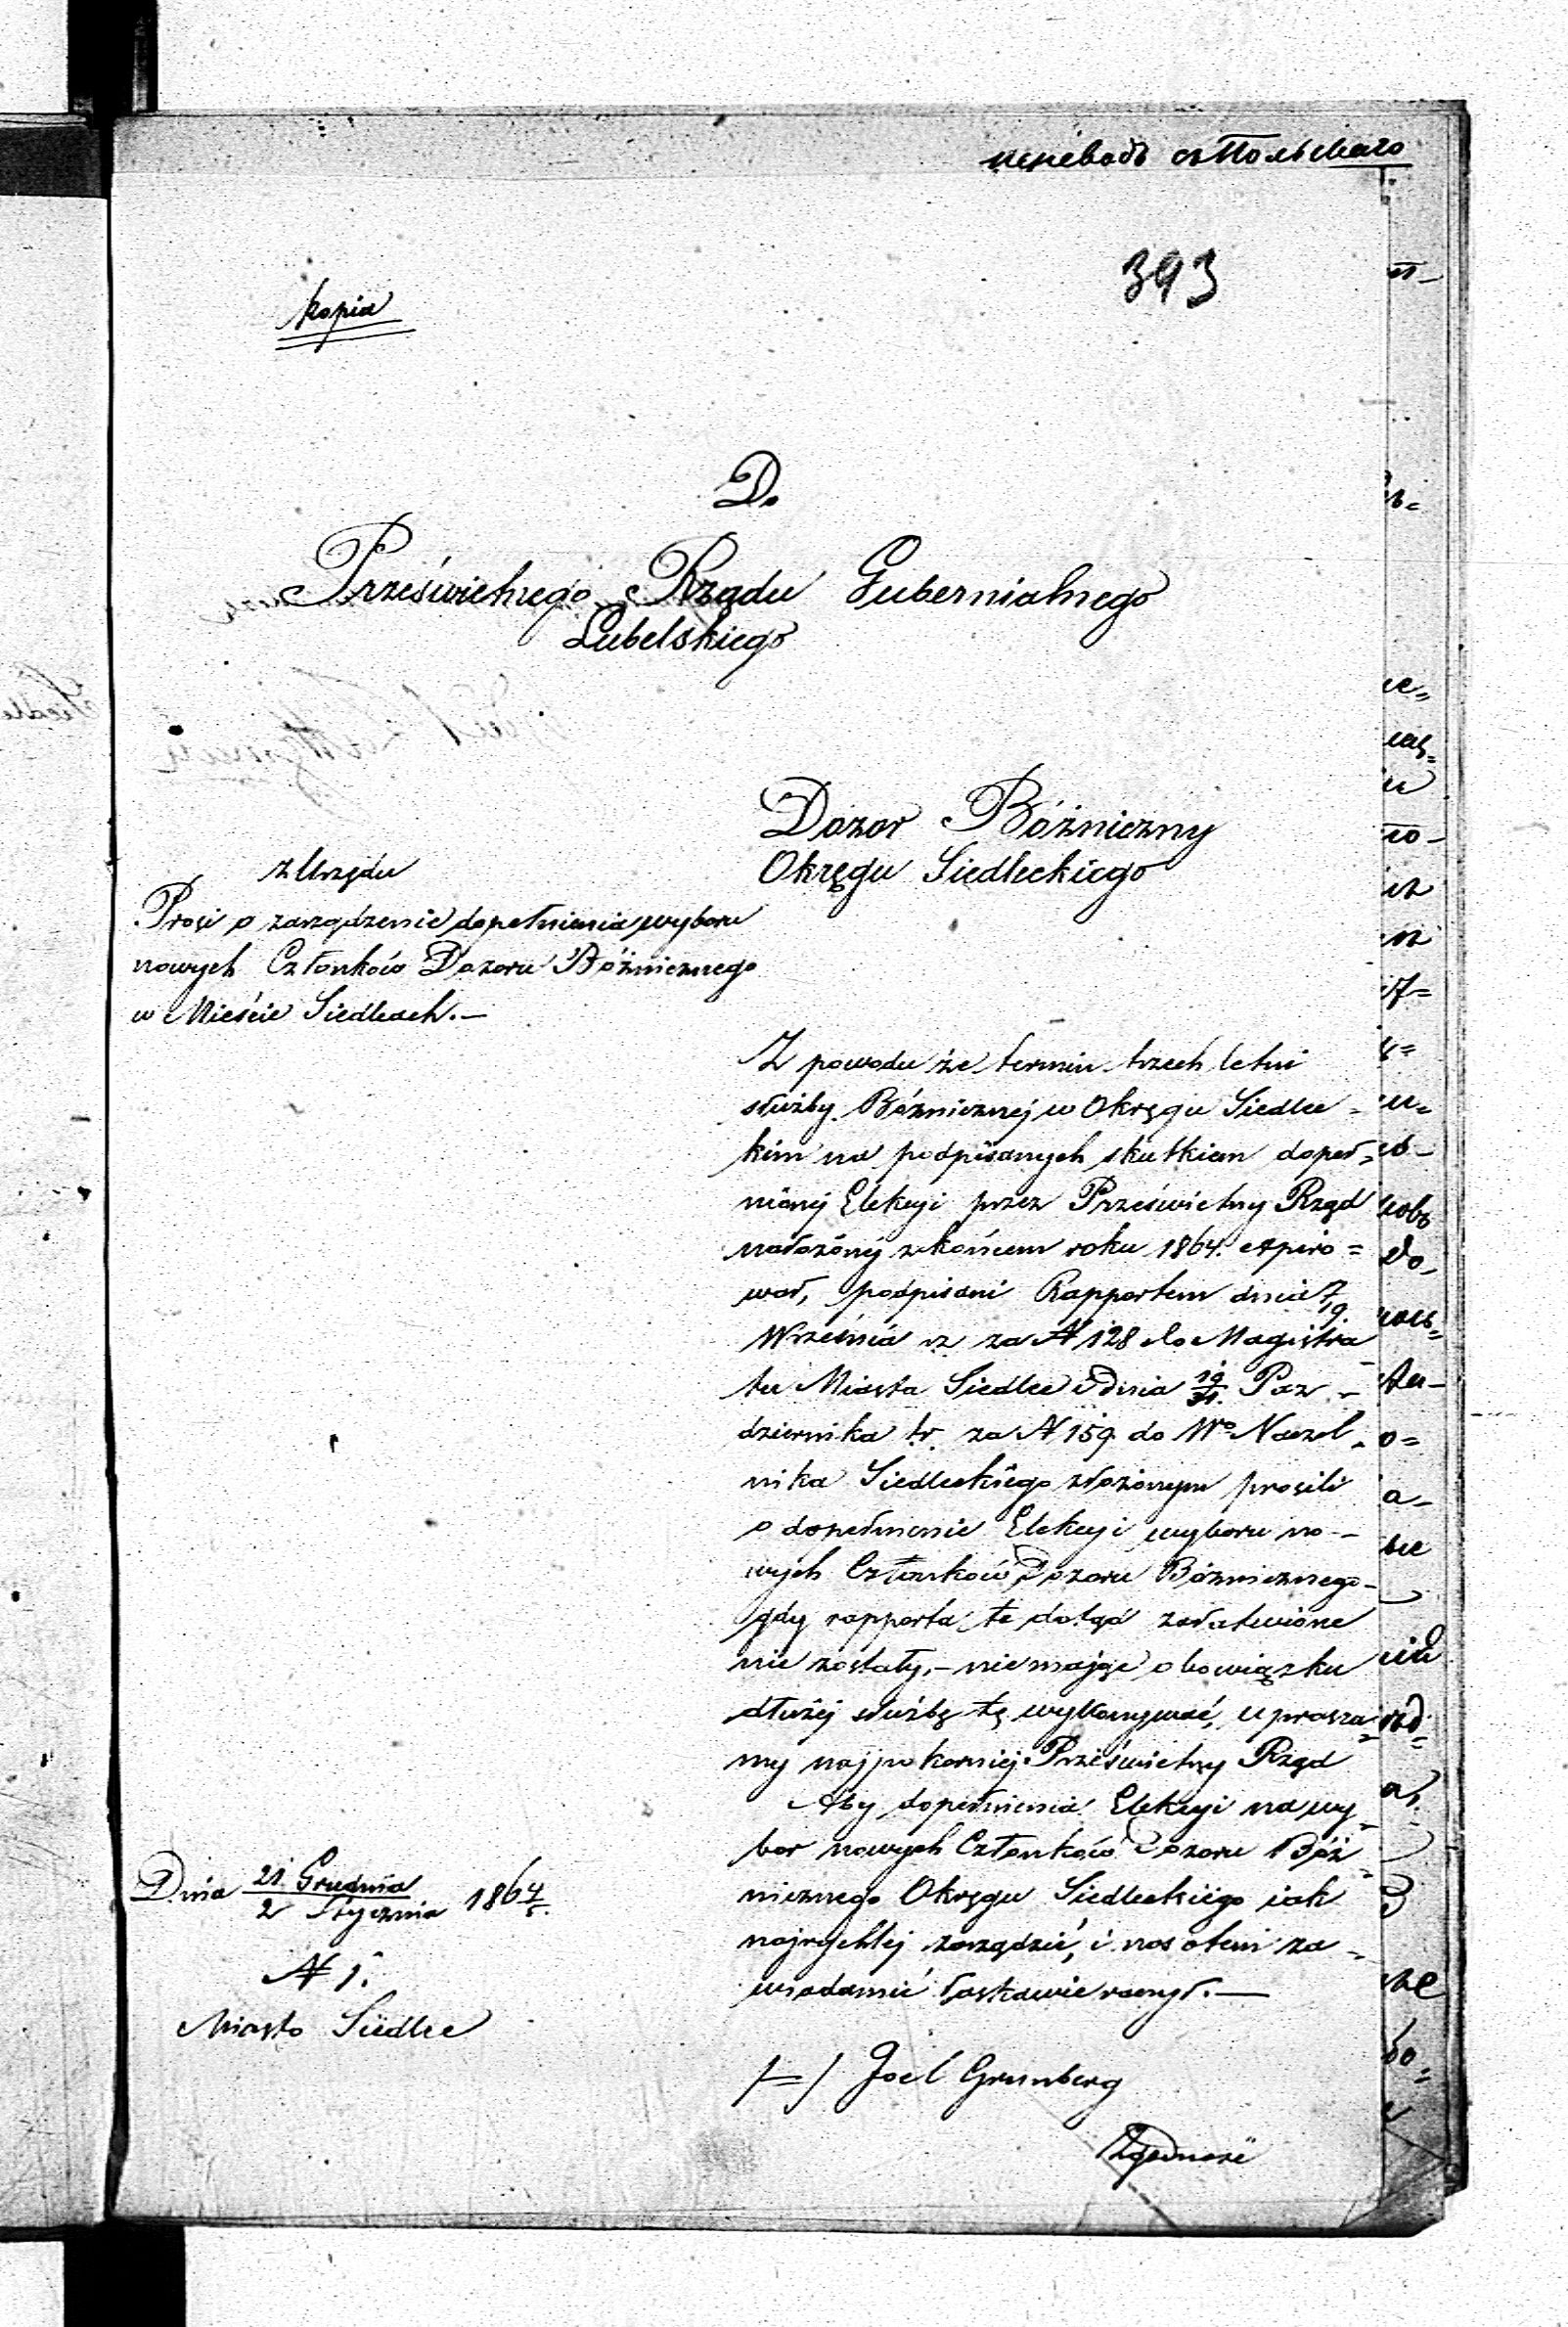 переводъ съ Польскаго
393
kopia
Do
Prześwietnego Rządu Gubernialnego
Lubelskiego
Dozor Bóżniczny
Okręgu Siedleckiego
z Urzędu
Prosi o zarządzenie dopełnienia wyboru
nowych Członków Dozoru Bóżnicznego
w Mieście Siedlcach.—
Z powodu że termin trzech letni
służby Bóżnicznej w Okręgu Siedlec=
kim na podpisanych skutkiem dopeł=
nionej Elekcyi przez Prześwietny Rząd
nałożónej z końcem roku 1864. expiro=
wał, podpisani Rapportem dnia 7/19.
Września rz za N 128 do Magistra
tu Miasta Siedlce i dnia 19/31. Paz-
dziernika tr. za N 159 do Wo Naczel-
nika Siedleckiego złożonym prosili
o dopełnienie Elekcyi wyboru no-
wych Członków Dozoru Bóżnicznego-
gdy rapporta te dotąd załatwione
nie zostały,- nie mając obowiązku
dłużej służbę tę wykonywać, uprasza=
my najpokorniej Prześwietny Rząd
Aby dopełnienia Elekcyi na wy-
bor nowych Członków Dozoru Bóż-
nicznego Okręgu Siedleckiego iak
najrychlej zarządzić, i nas otem za-
wiadamić łaskawie raczył.—
Dnia 21 Grudnia / 2 Stycznia 1864/5.
N 1.
Miasto Siedlce
/=/ Joel Grunberg
Zgodność